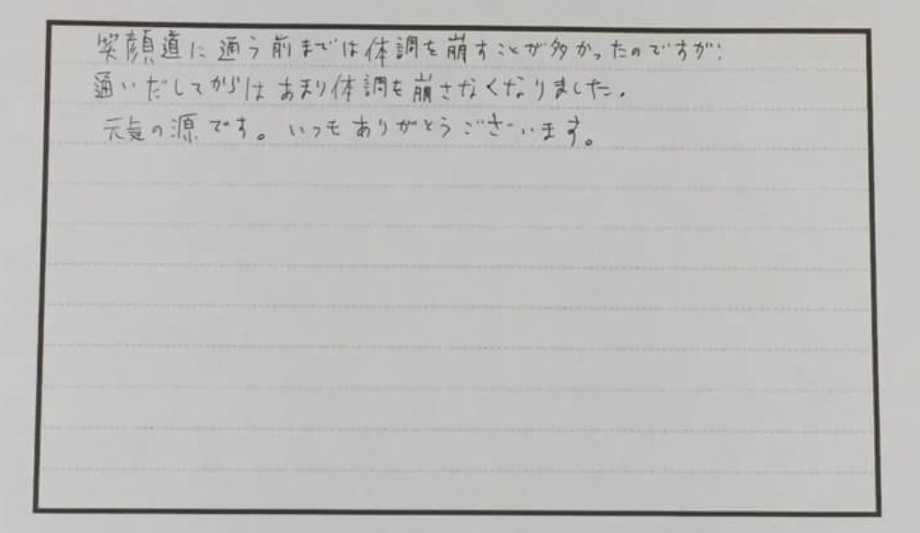 笑顔道に通う前までは体調を崩すことが多かったのですが、
通いだしてからはあまり体調を崩さなくなりました。
元気の源です。いつもありがとうございます。